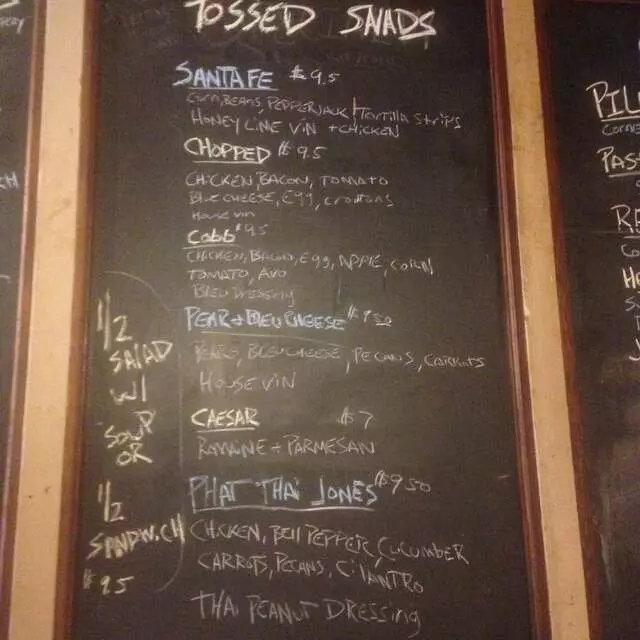 TOSSED SALADS
SANTA FE $9.5
Corn, Beans, Pepperjack, Tortilla Strips
HONEY LIME VIN + CHICKEN
CHOPPED $9.5
CHICKEN, BACON, TOMATO
BLEU CHEESE, Egg, croutons
House vin
Cobb $9.5
CHICKEN, BACON, Egg, APPLE, CORN
TOMATO, AVO
BLEU DRESSING
PEAR + BLEU CHEESE $9.50
PEARS, BLEU CHEESE, PECANS, CARROTS
HOUSE VIN
CAESAR $7
ROMAINE + PARMESAN
PHAT THAI JONES $9.50
CHICKEN, BELL PEPPER, CUCUMBER
CARROTS, PECANS, CILANTRO
THAI PEANUT DRESSING
1/2
SALAD
W/
SOUP
OR
1/2
SANDWICH
$9.5